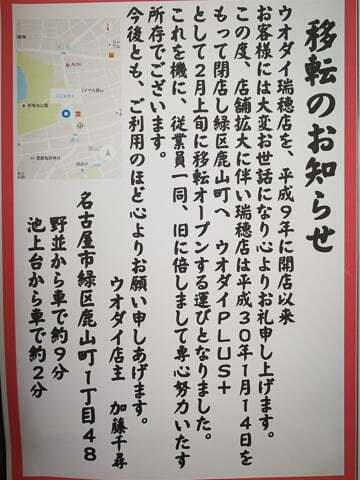 移転のお知らせ
ウオダイ瑞穂店を、平成9年に開店以来
お客様には大変お世話になり心よりお礼申し上げます。
この度、店舗拡大に伴い瑞穂店は平成30年1月14日を
もって閉店し緑区鹿山町へ ウオダイPLUS+
として2月上旬に移転オープンする運びとなりました。
これを機に、従業員一同、旧に倍しまして専心努力いたす
所存でございます。
今後とも、ご利用のほど心よりお願い申しあげます。
ウオダイ店主 加藤千尋
名古屋市緑区鹿山町1丁目48
野並から車で約9分
池上台から車で約2分